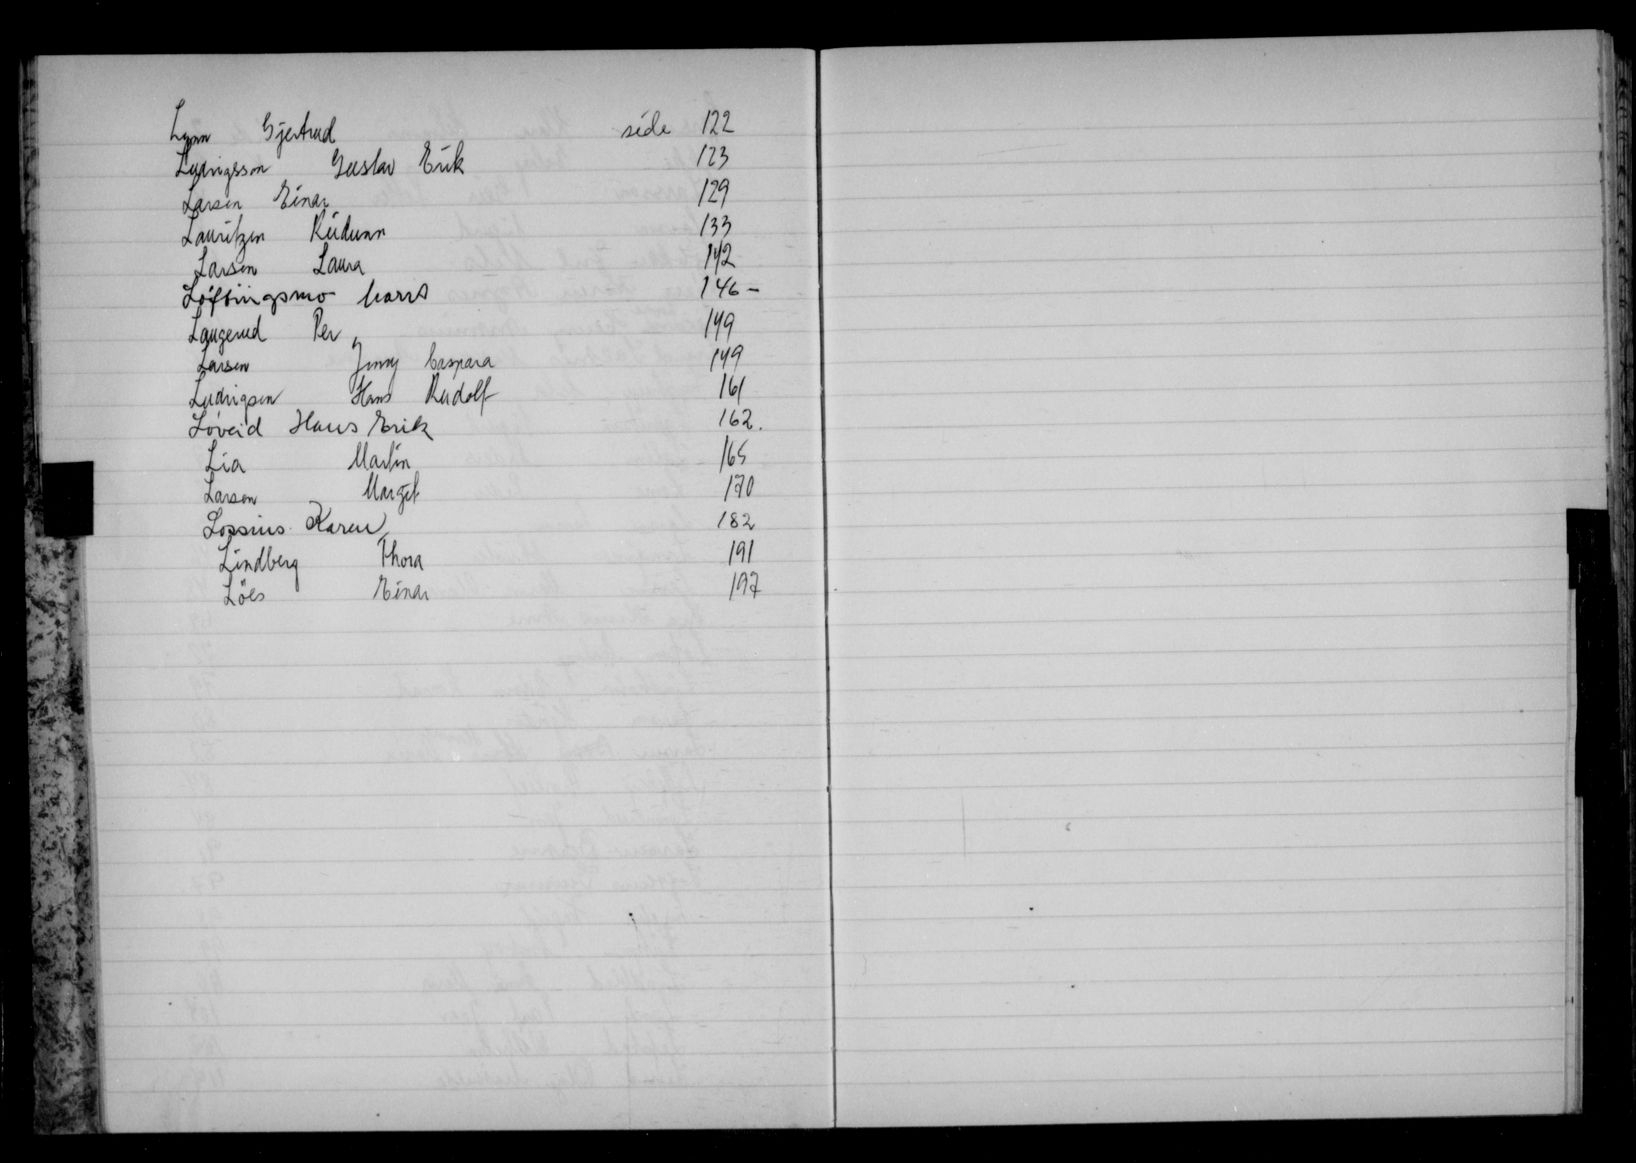 Lynn Gjertrud side 122
Ludvigsson Gustav Erik 123
Larsen Einar 129
Lauritzen Reidunn 133
Larsen Laura 142
Løftingsmo Harris 146 -
Laugerud Per 149
Larsen Jenny Caspara 149
Ludvigsen Hans Rudolf 161
Løveid Hans Erik 162.
Lia Martin 165
Larsen Margit 170
Lossius Karen 182
Lindberg Thora 191
Löes Einar 197